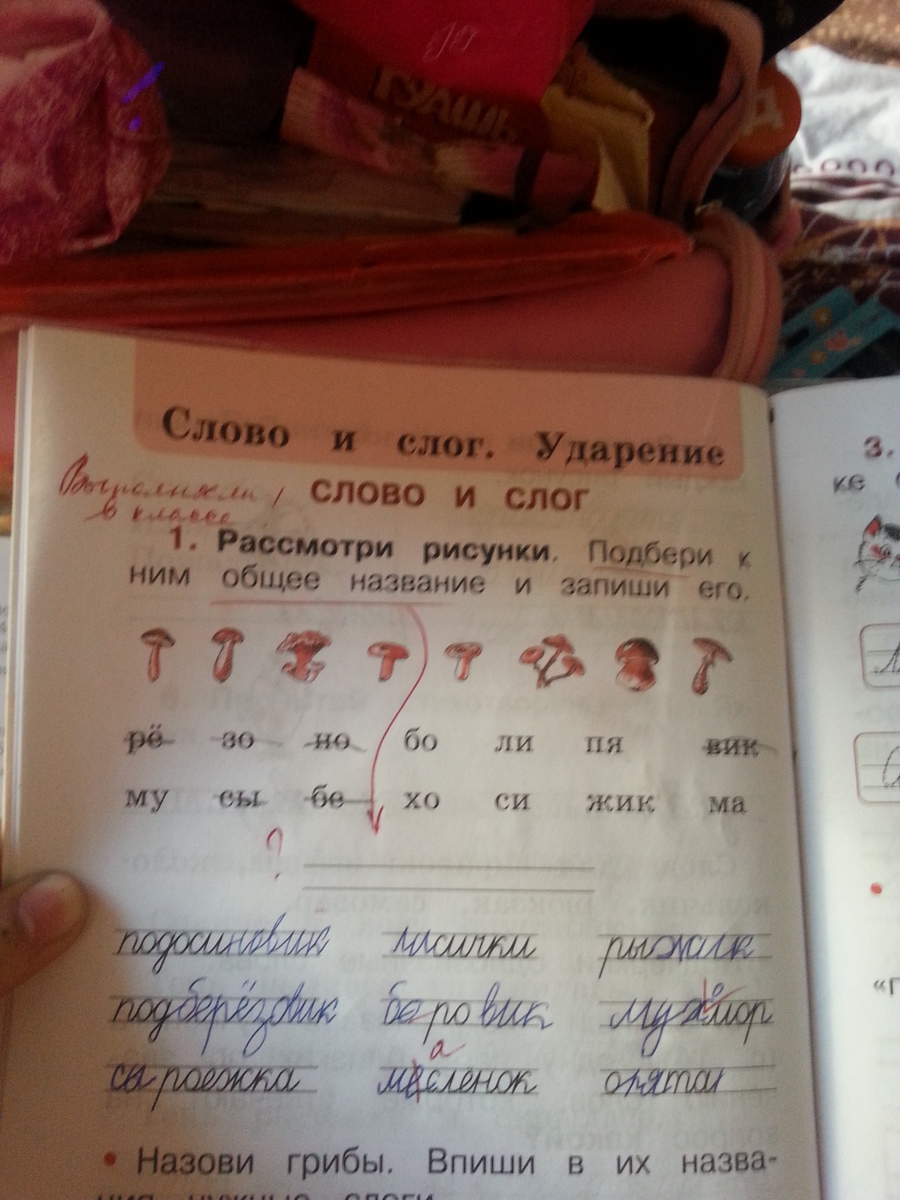 ГУАШЬ
Слово и слог. Ударение
Выполняли
в классе
СЛОВО И СЛОГ
1. Рассмотри рисунки. Подбери к
ним общее название и запиши его.
рё зо но бо ли пя вик
му сы бе хо си жик ма
?
подосиновик лисички рыжик
подберёзовик боровик мухомор
сыроежка а маслёнок опята
• Назови грибы. Впиши в их назва-
ния нужные слоги.
3.
ке
«П